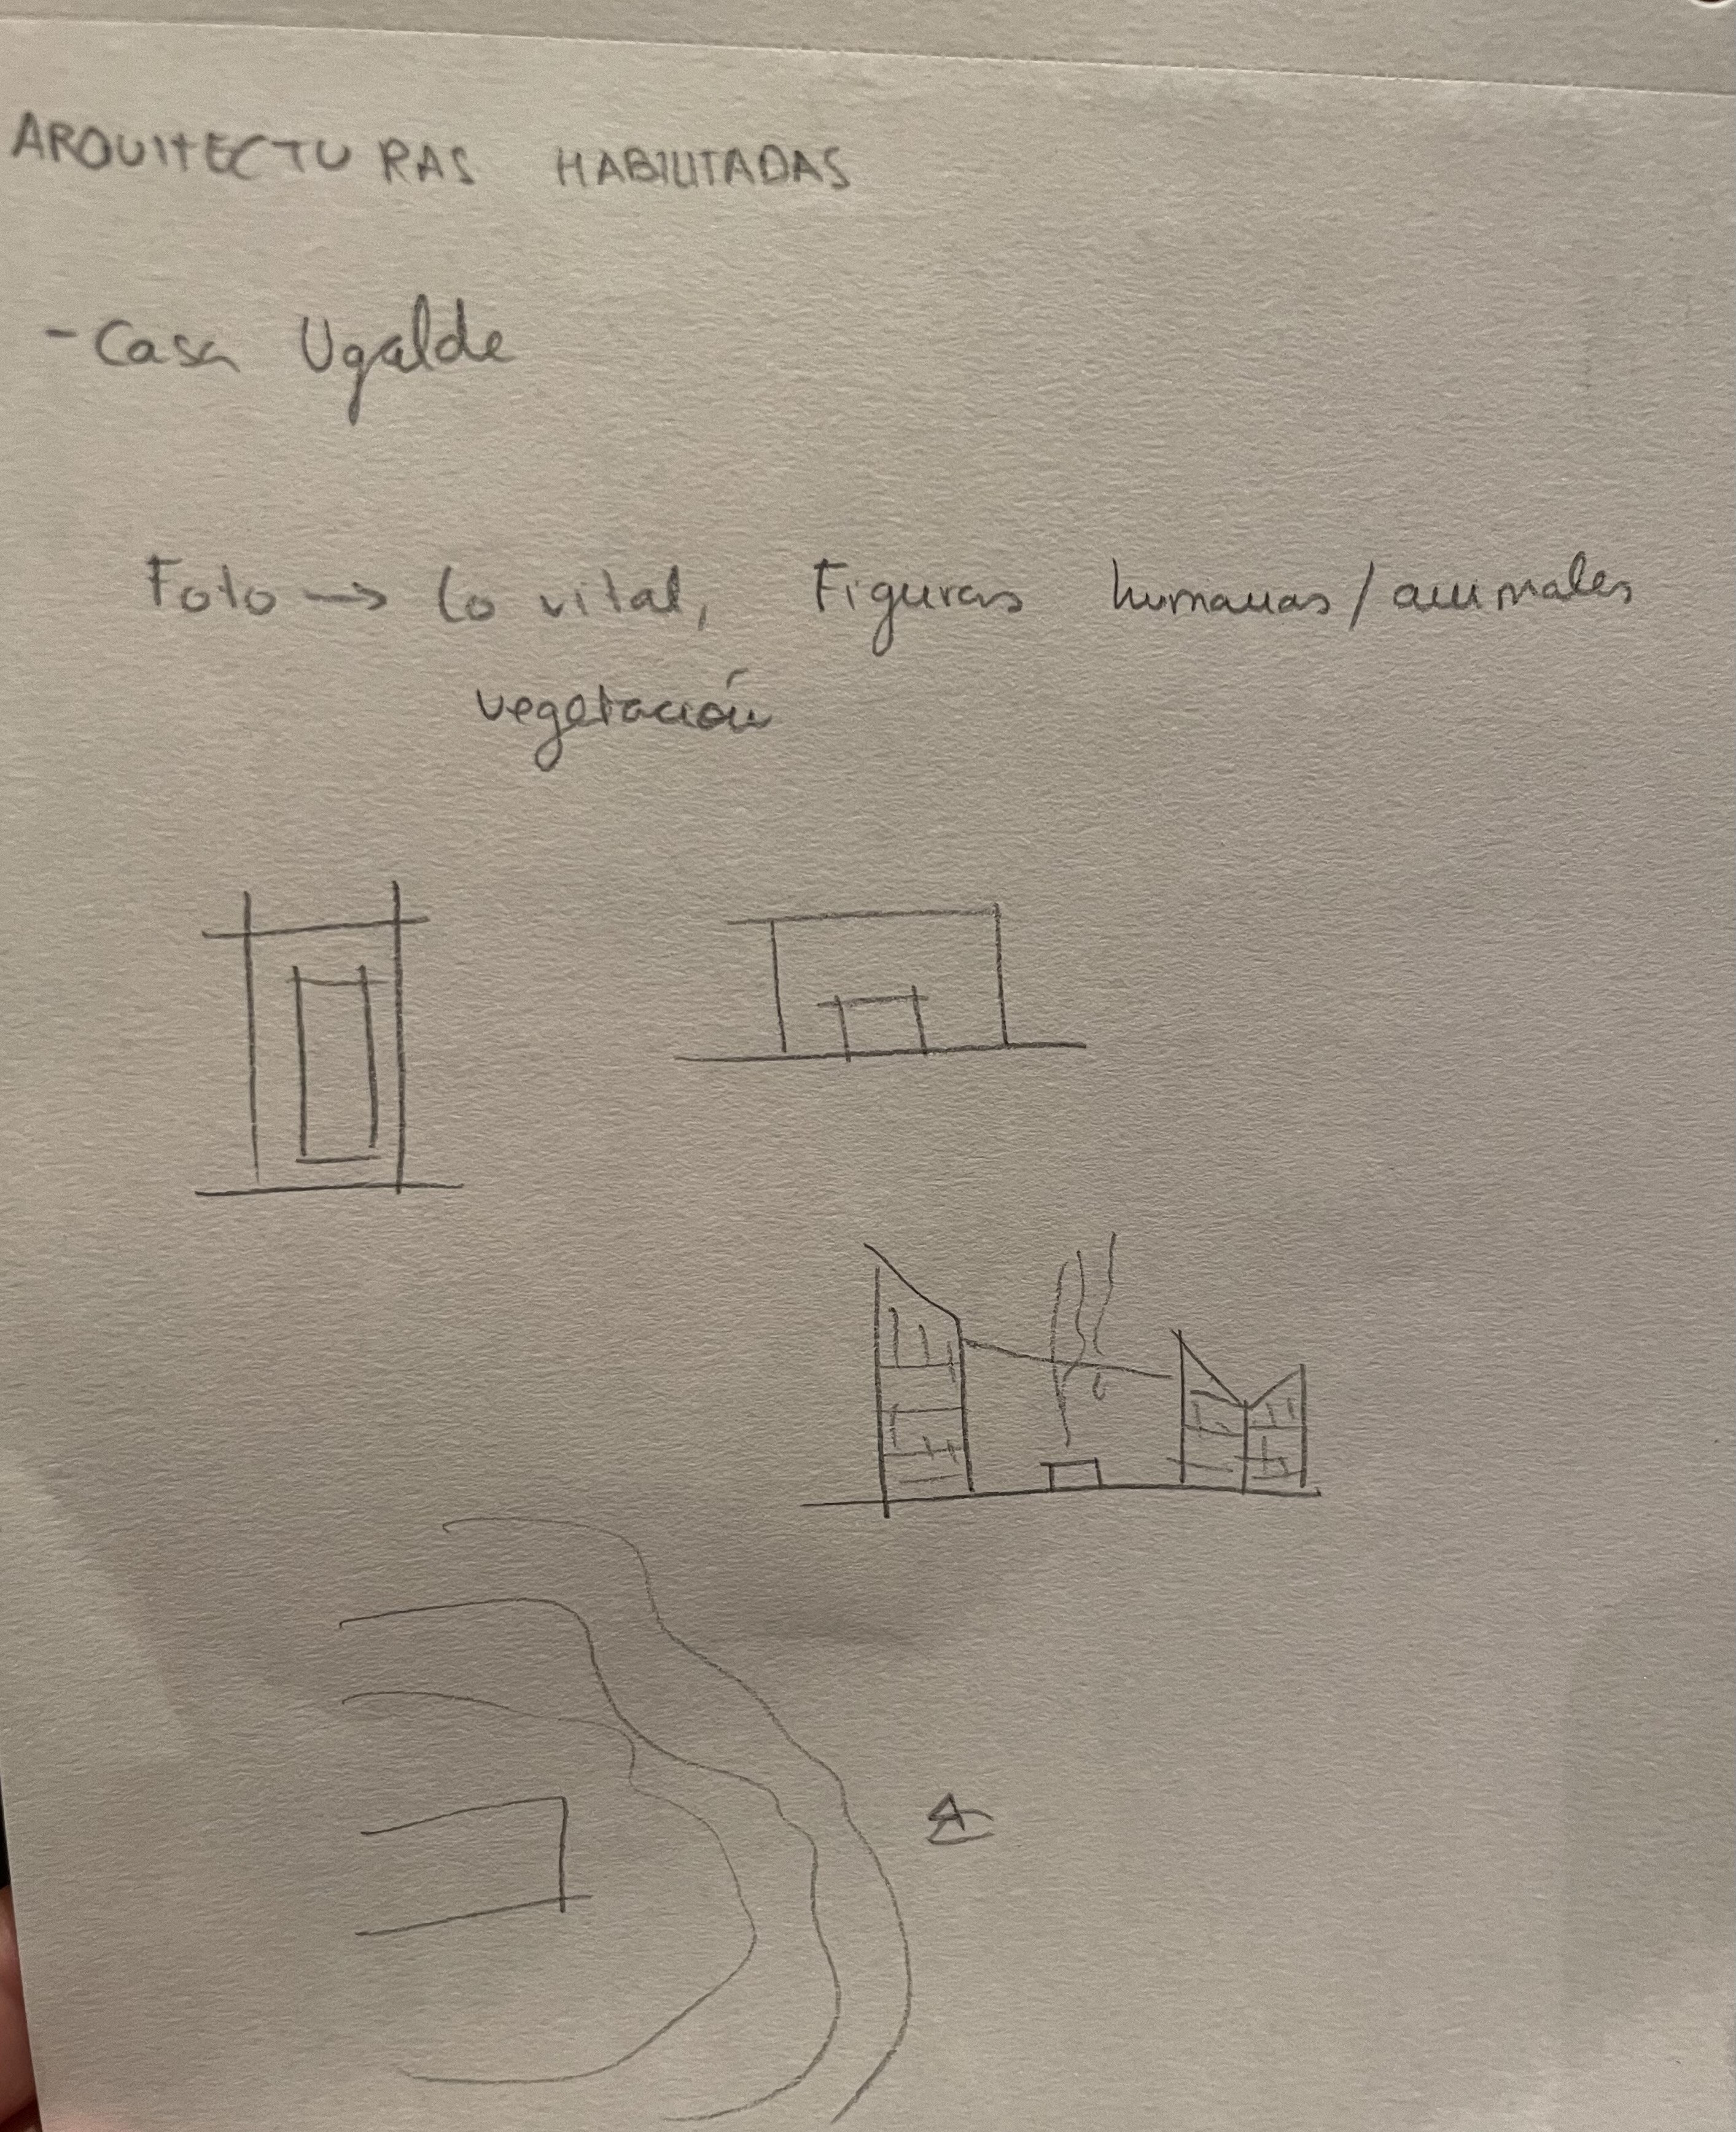 ARQUITECTURAS HABILITADAS
- Casa Ugalde
Foto → Lo vital, Figuras humanas/animales
vegetación